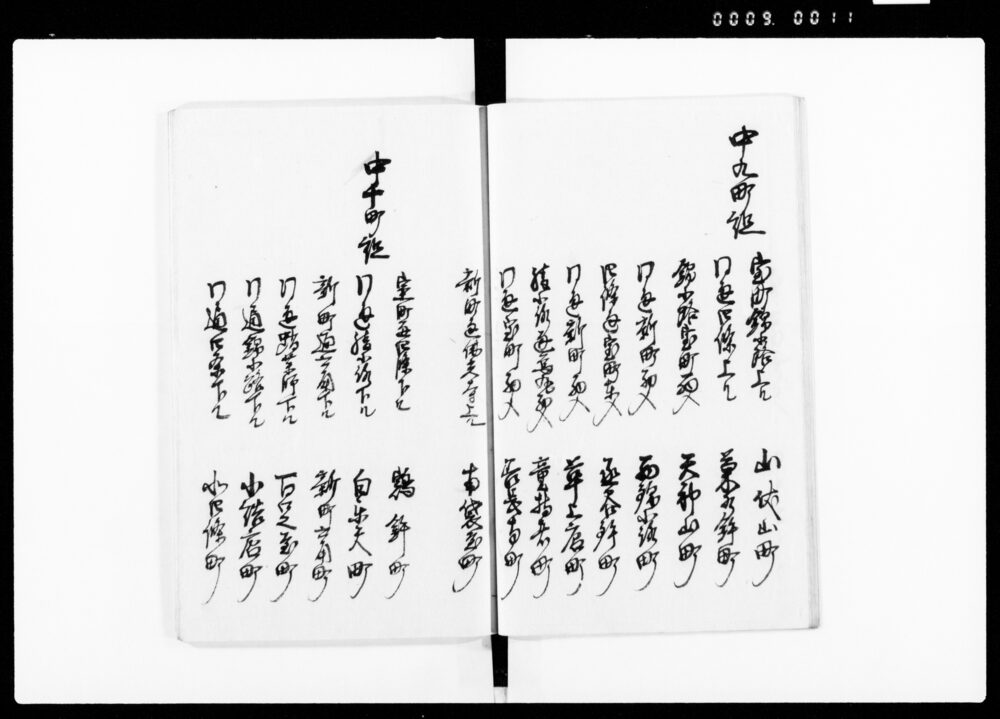 0009. 0011
中九町組
室町錦小路上ル 山伏山町
同通四條上ル 菊水鉾町
錦小路室町西入 天神山町
同通新町西入 西錦小路町
四條通室町東入 函谷鉾町
同通新町西入
綾小路通烏丸西入 童侍者町
同通室町西入 善長寺町
新町通佛光寺上ル 南袋屋町
中十町組
室町通四條下ル 鶏鉾町
同通綾小路下ル 白楽天町
新町通六角下ル 新町六角町
同通蛸薬師下ル 百足屋町
同通錦小路下ル 小結店町
同通四条下ル 四條町